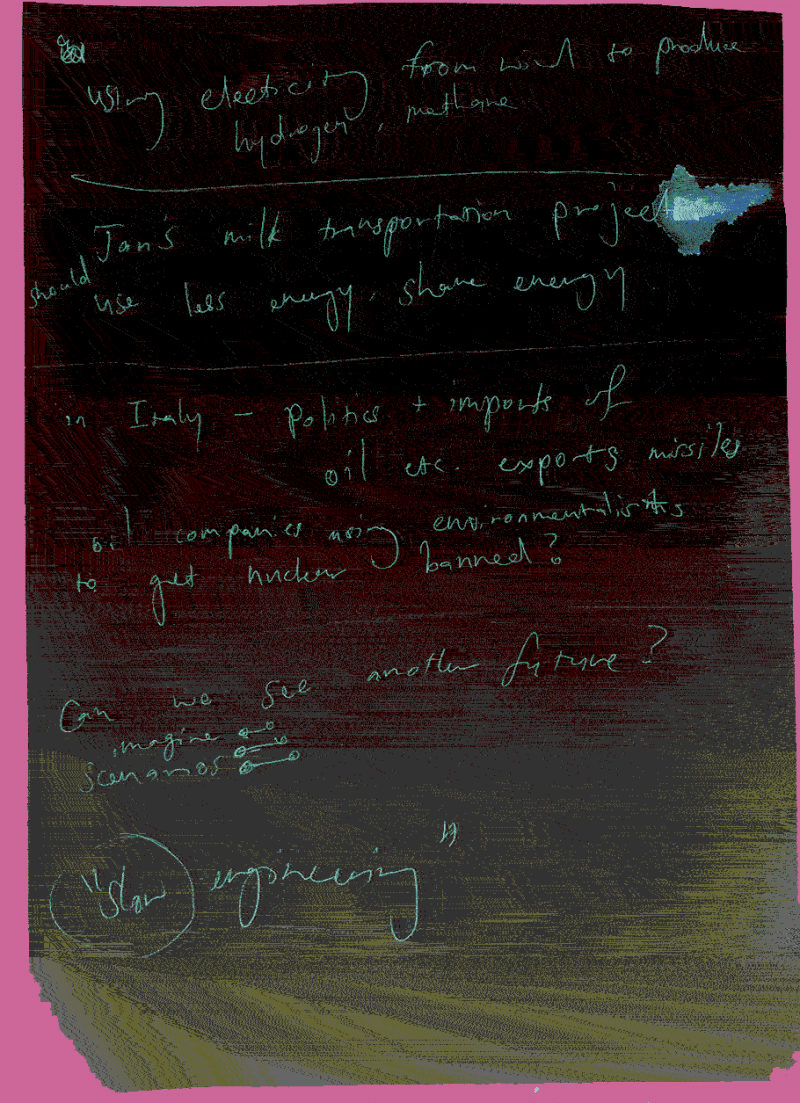 using electicity from wind to produce
hydrogen, methane
Jan's milk transportation project
should use less energy, share energy
in Italy – politics + imports of
oil etc. exports missiles
oil companies using environmentalists
to get nuclear banned?
Can we see another future?
imagine
scenarios
"Slow" engineering"